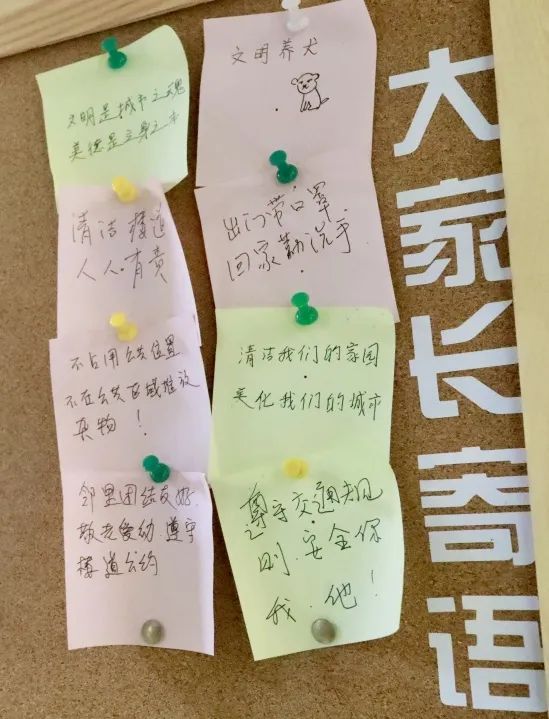 文明是城市之魂
美德是立身之本
清洁楼道
人人有责
不占用公共位置
不在公共区域堆放
杂物！
邻里团结友好.
敬老爱幼.遵守
楼道公约
文明养犬
出门带口罩.
回家勤洗手.
清洁我们的家园
美化我们的城市
遵守交通规
则.安全你
我.他！
大家长寄语